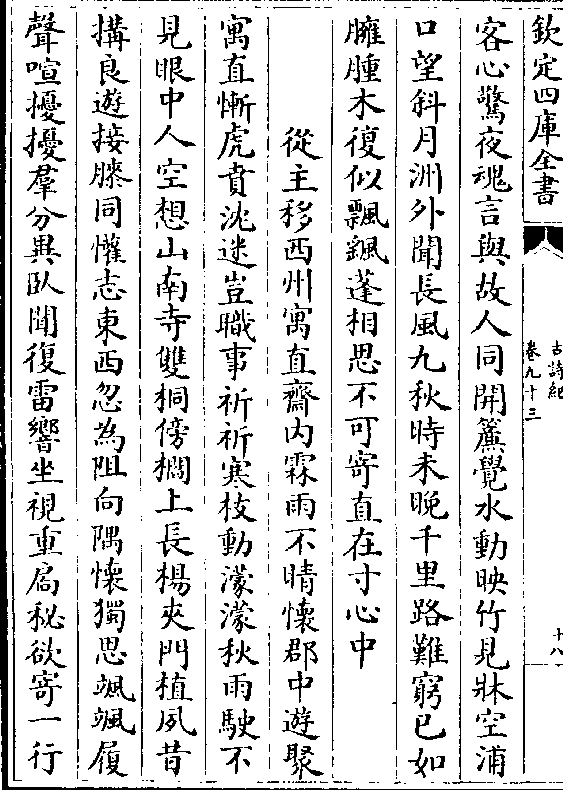 欽定四庫全書
古詩紀
卷九十三
十八
客心驚夜魂言與故人同開簾覺水動映竹見牀空浦
口望斜月洲外聞長風九秋時未晚千里路難窮已如
臃腫木復似飄颻蓬相思不可寄直在寸心中
從主移西州寓直齋内霖雨不晴懷郡中遊聚
寓直慚虎賁沈迷豈職事祈祈寒枝動濛濛秋雨駛不
見眼中人空想山南寺雙桐傍櫩上長楊夾門植夙昔
搆良遊接膝同懽志東西忽為阻向隅懷獨思颯颯履
聲喧擾擾羣分異臥聞復雷響坐視重扃秘欲寄一行